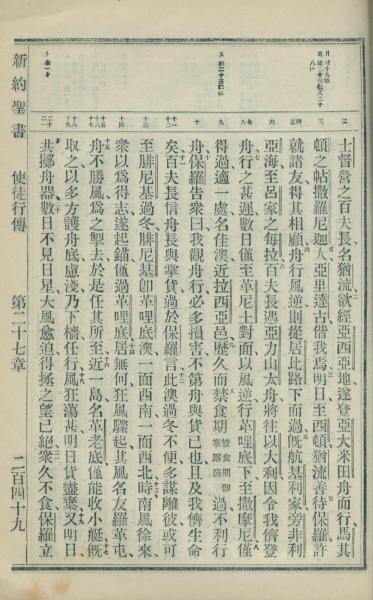 士督營之百夫長名猶流欲經亞西亞地遂登亞大米田舟而行馬其
頓之帖撒羅尼迦人亞里達古偕我焉明日至西頓猶流善待保羅許
就諸友得其相顧舟行風逆則從居比路下而過旣航基利家旁非利
亞海至呂家之每拉百夫長遇亞力山太舟將往以大利因令我儕登
舟行之甚遲數日僅至革尼土對面以風逆行革哩底下至撒摩尼僅
得過適一處名佳澳近拉西亞邑歷久而禁食期過不利行
舟保羅告衆曰我觀舟行必多損害不第舟與貨已也且及我儕生命
矣百夫長信舟長與掌貨過於保羅言此澳過冬不便多謀離彼或可
至腓尼基過冬腓尼基卽革哩底澳一面西南一面西北時南風徐來
衆以爲得志遂起錨僅過革哩底居無何狂風驟起其風名友羅革屯
舟不勝風爲之擊去於是任其所至近一島名革老底僅能收小艇旣
取之以多方護舟底慮淺乃下檣任行風狂蕩甚明日貨盡棄又明日
共擲舟器數日不見日星大風愈迫得拯之望已絕衆久不食保羅立
新約聖書
使徒行傳
第二十七章
二百四十九